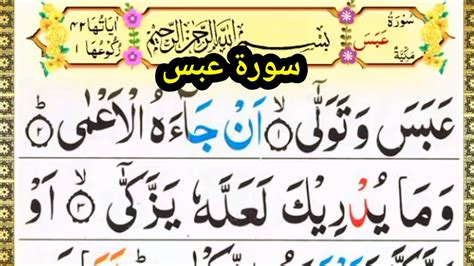 سُوْرَةُ عَبَسَ مَكِّيَّةٌ
بِسْمِ اللّٰهِ الرَّحْمٰنِ الرَّحِيْمِ
اٰيَاتُهَا ٤٢ رُكُوْعُهَا ١
سورة عبس
عَبَسَ وَتَوَلّٰىۤ ۙ﴿١﴾ اَنْ جَآءَهُ الْاَعْمٰى ؕ﴿٢﴾
وَمَا يُدْرِيْكَ لَعَلَّهٗ يَزَّكّٰىۤ ۙ﴿٣﴾ اَوْ